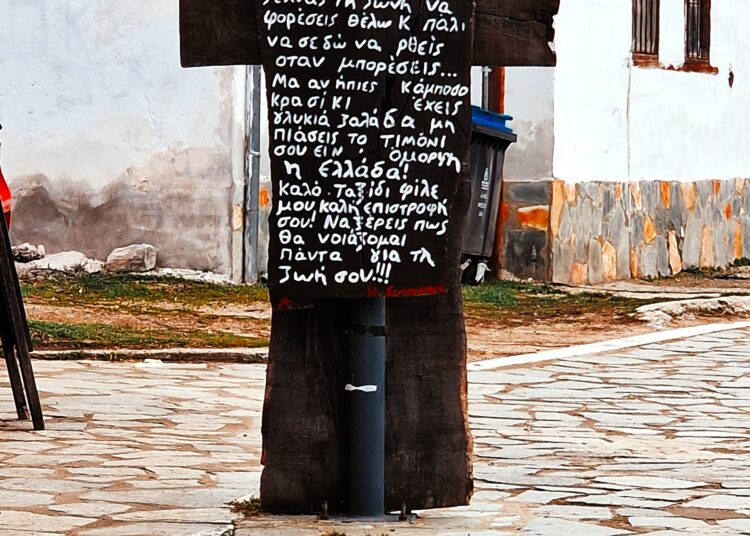 τη ζωνη να
φορέσεις θέλω κ πάλι
να σε δώ να ρθείς
οταν μπορέσεις...
Μα αν ήπιες κάμποσο
κρασί κι έχεις
γλυκιά ζαλάδα μη
πιάσεις το τιμόνι
σου είν όμορφη
η Ελλάδα!
καλό ταξίδι φίλε
μου καλή επιστροφή
σου! Να ξέρεις πως
θα νοιάζομαι
πάντα για τη
ζωή σου!!!